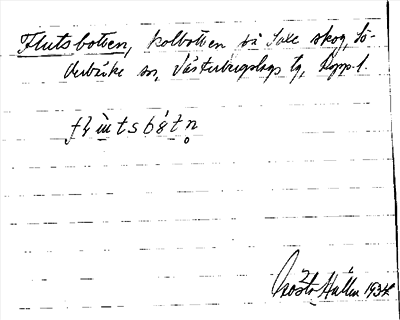 Flutsbotten, kolbotten på Saxe skog, Sö-
derbärke sn, Västerbergslags tg, Kopp. l.
Gösta Hallén 1934